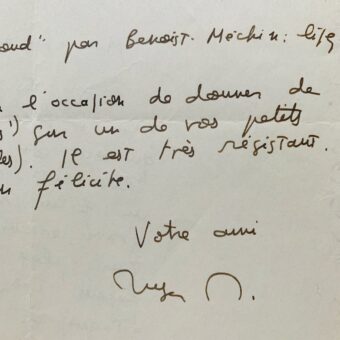 par Benoist-Méchin : lisez
l'occasion de donner de
sur un de vos petits
Il est très résistant.
félicite.
Votre ami